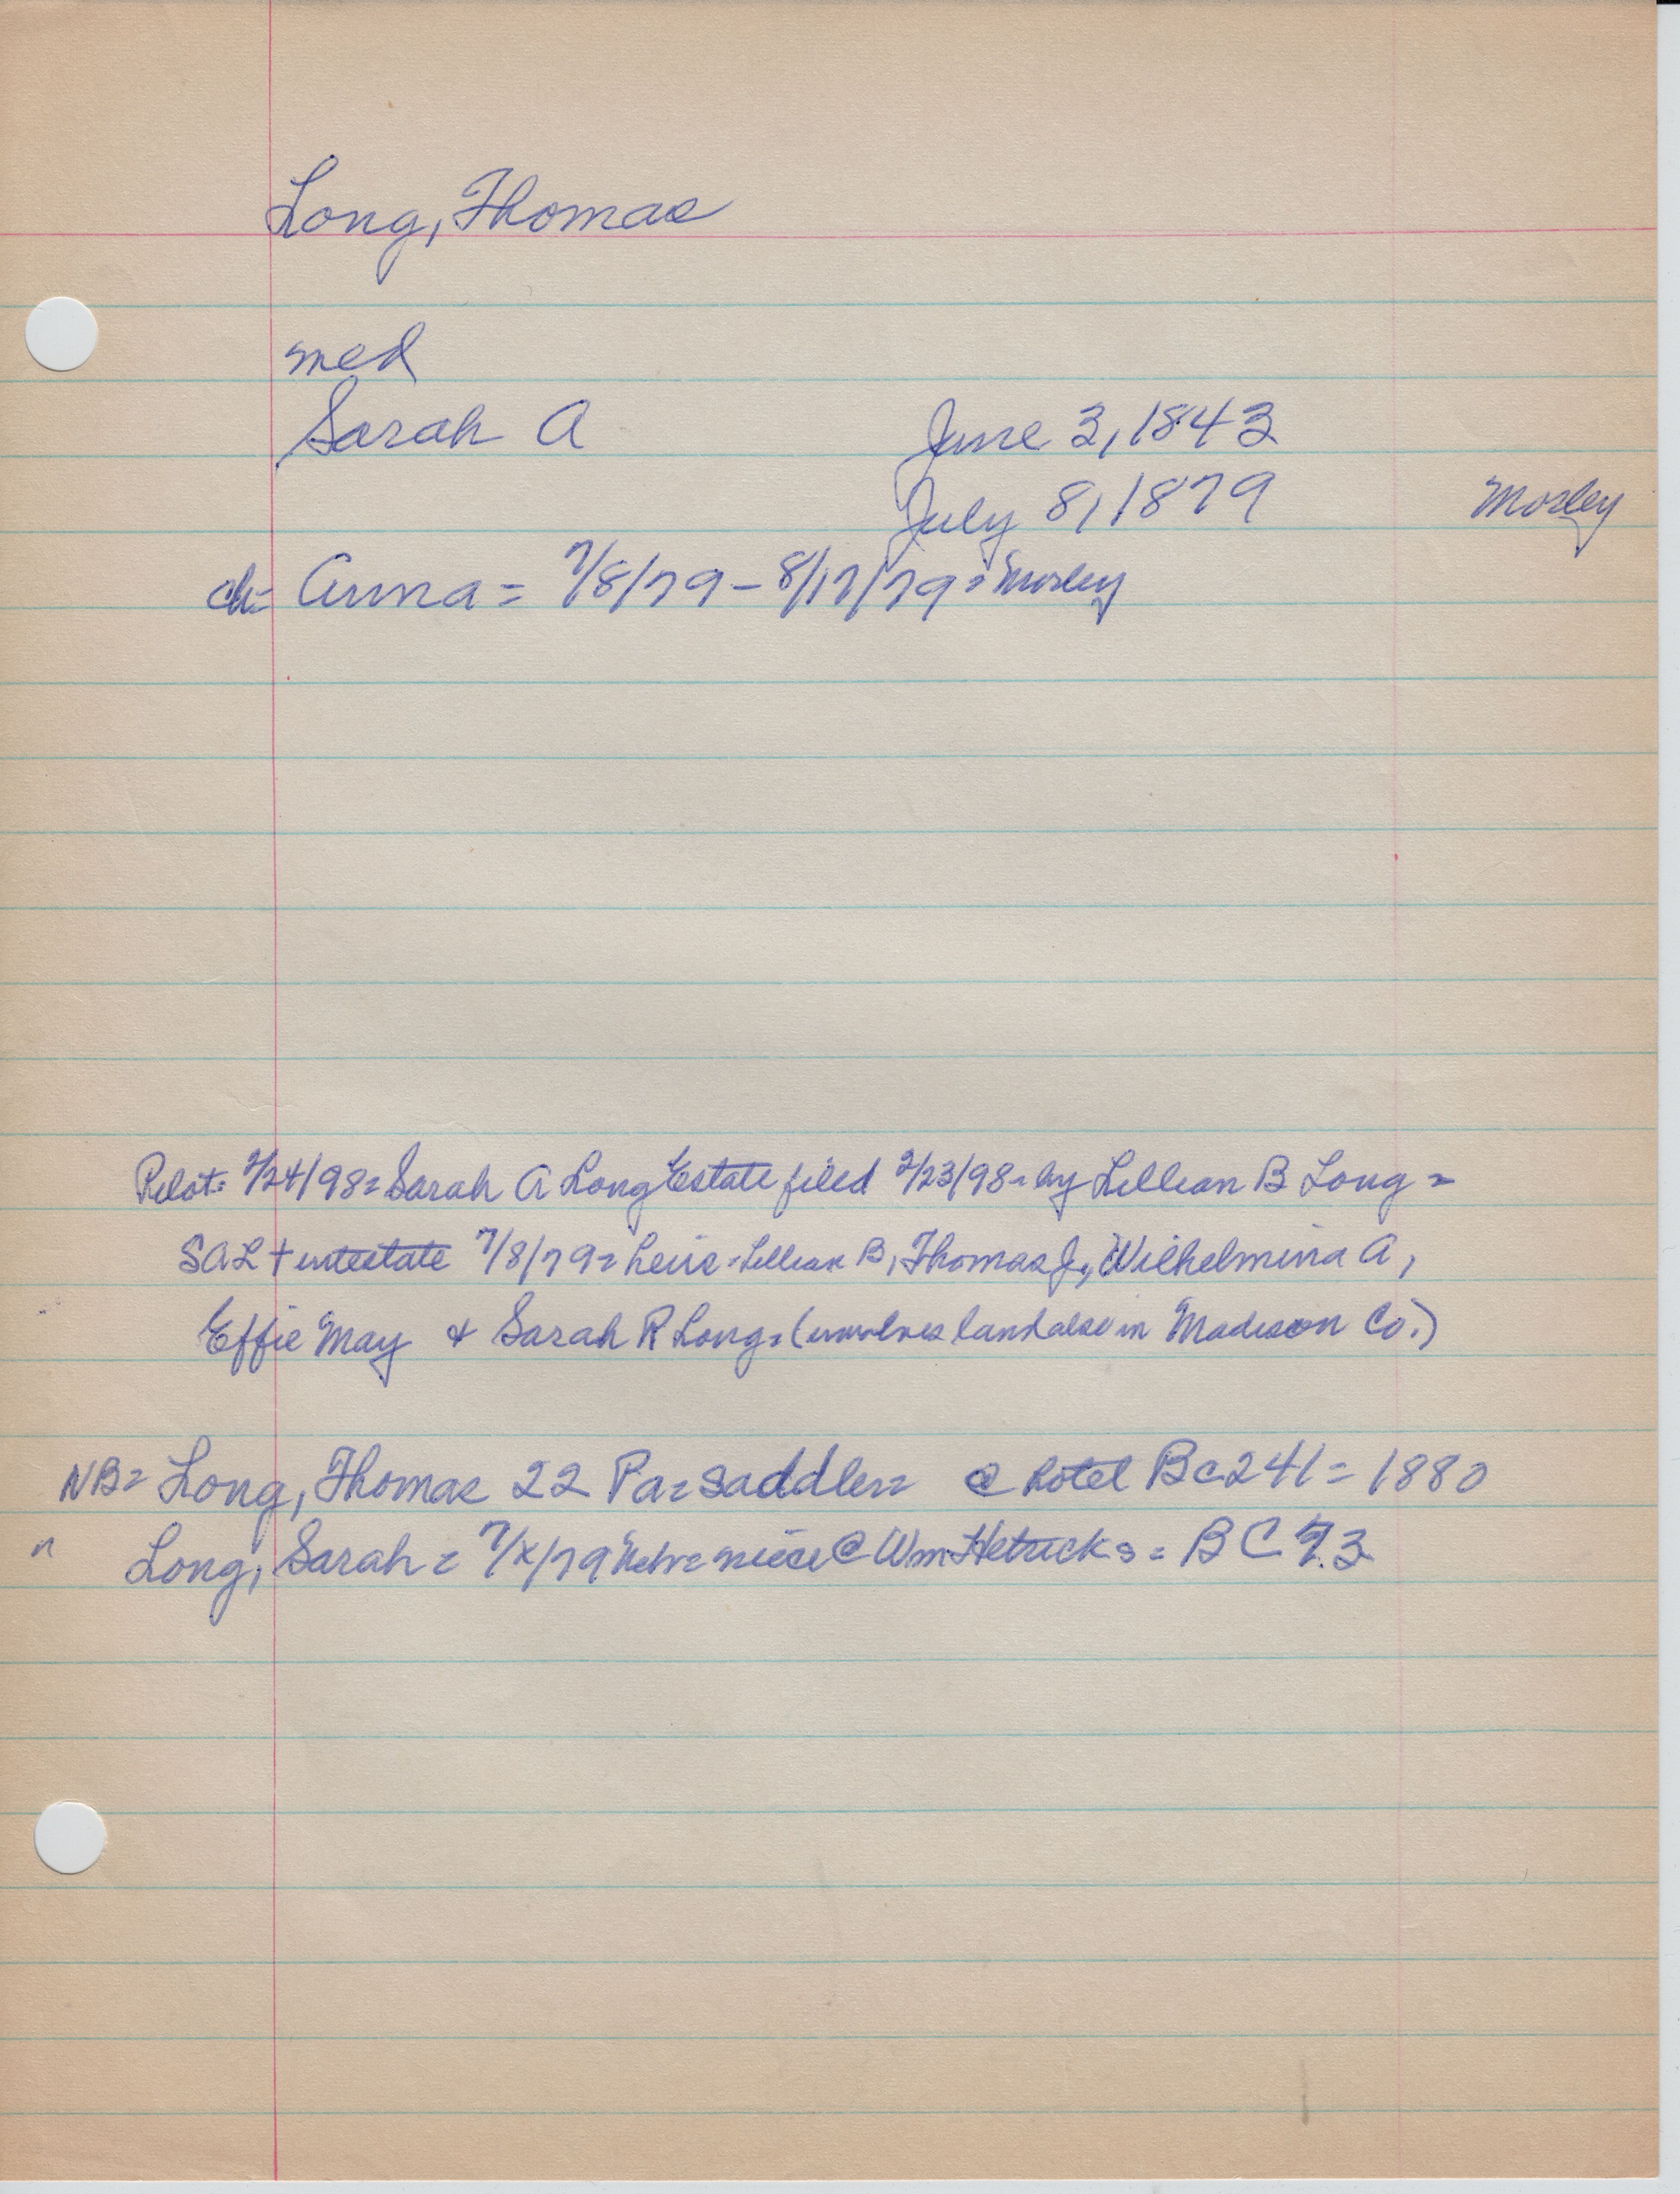 Long, Thomas
med
Sarah A June 3, 1843
July 8, 1879 Morley
ch= Anna = 7/8/79 - 8/17/79 = Morley
Pilot= 2/24/98= Sarah A Long Estate filed 2/23/98= by Lillian B Long =
SAL + intestate 7/8/79= heirs = Lillian B, Thomas J, Wilhelmina A,
Effie May & Sarah R Long= (involves land also in Madison Co.)
NB= Long, Thomas 22 Pa= saddler= @ hotel BC 241 = 1880
" Long, Sarah = 7/x/79 Nebr= niece @ Wm Hetricks = BC 93